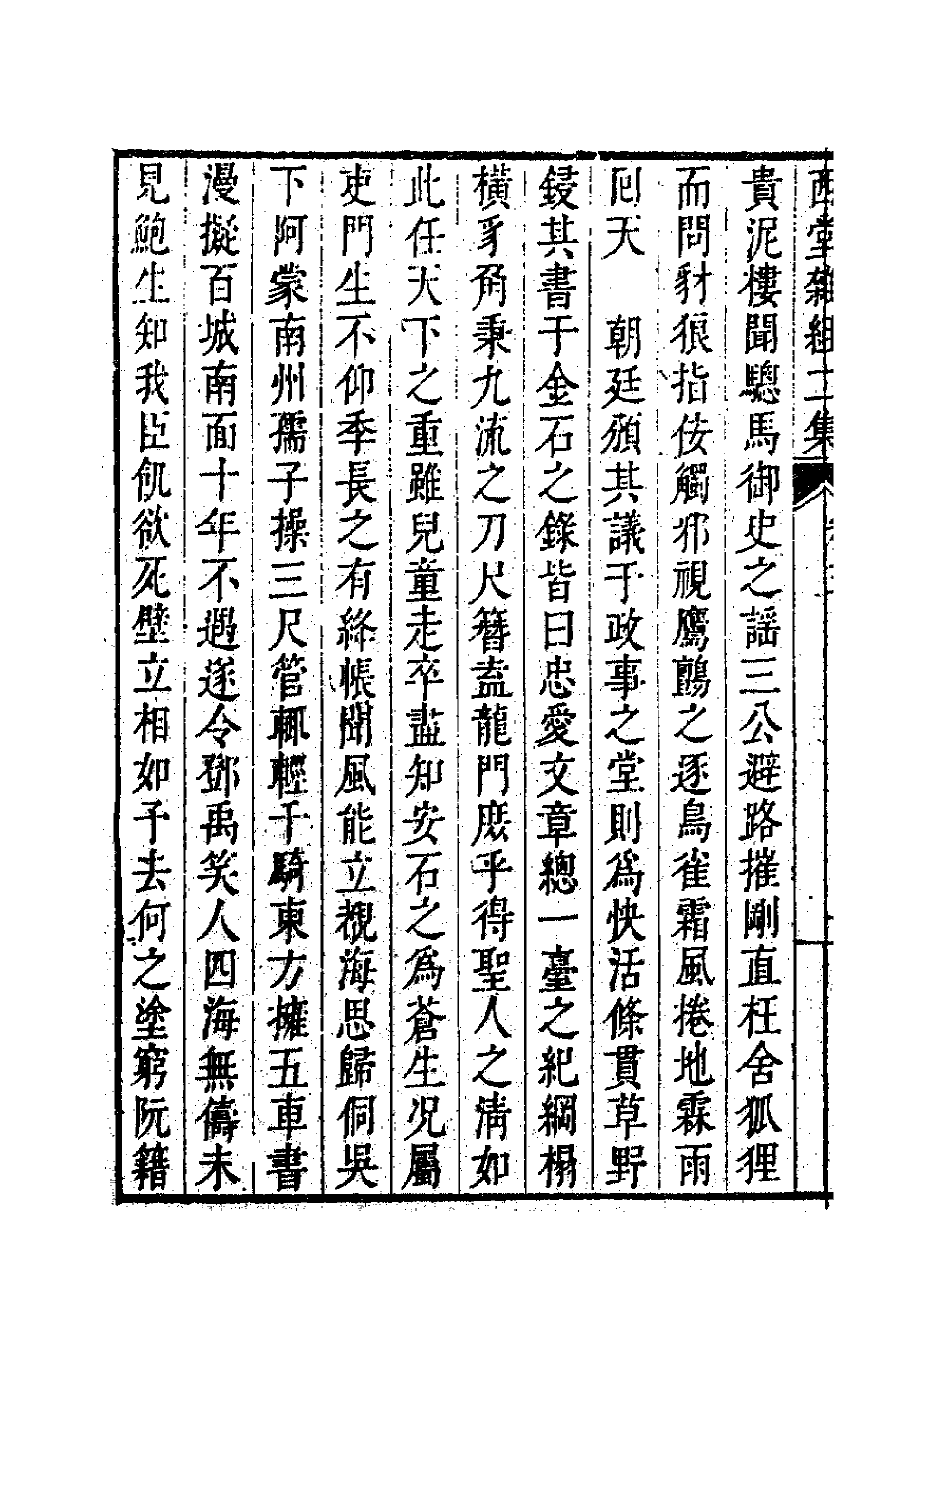 西堂雜組二集
貴泥樓聞驄馬御史之謡三公避路摧剛直枉舍狐狸
而問豺狼指佞觸邪視鷹鸇之逐鳥雀霜風捲地霖雨
回天　朝廷頒其議于政事之堂則爲快活條貫草野
鋟其書于金石之錄皆曰忠愛文章總一臺之紀綱榻
橫豸角秉九流之刀尺簪盍龍門庶乎得聖人之淸如
此任天下之重雖兒童走卒盡知安石之爲蒼生况屬
吏門生不仰季長之有絳帳聞風能立覩海思歸侗吳
下阿蒙南州孺子操三尺管輒輕千騎東方擁五車書
漫擬百城南面十年不遇遂令鄧禹笑人四海無儔未
見鮑生知我臣飢欲死壁立相如予去何之塗窮阮籍